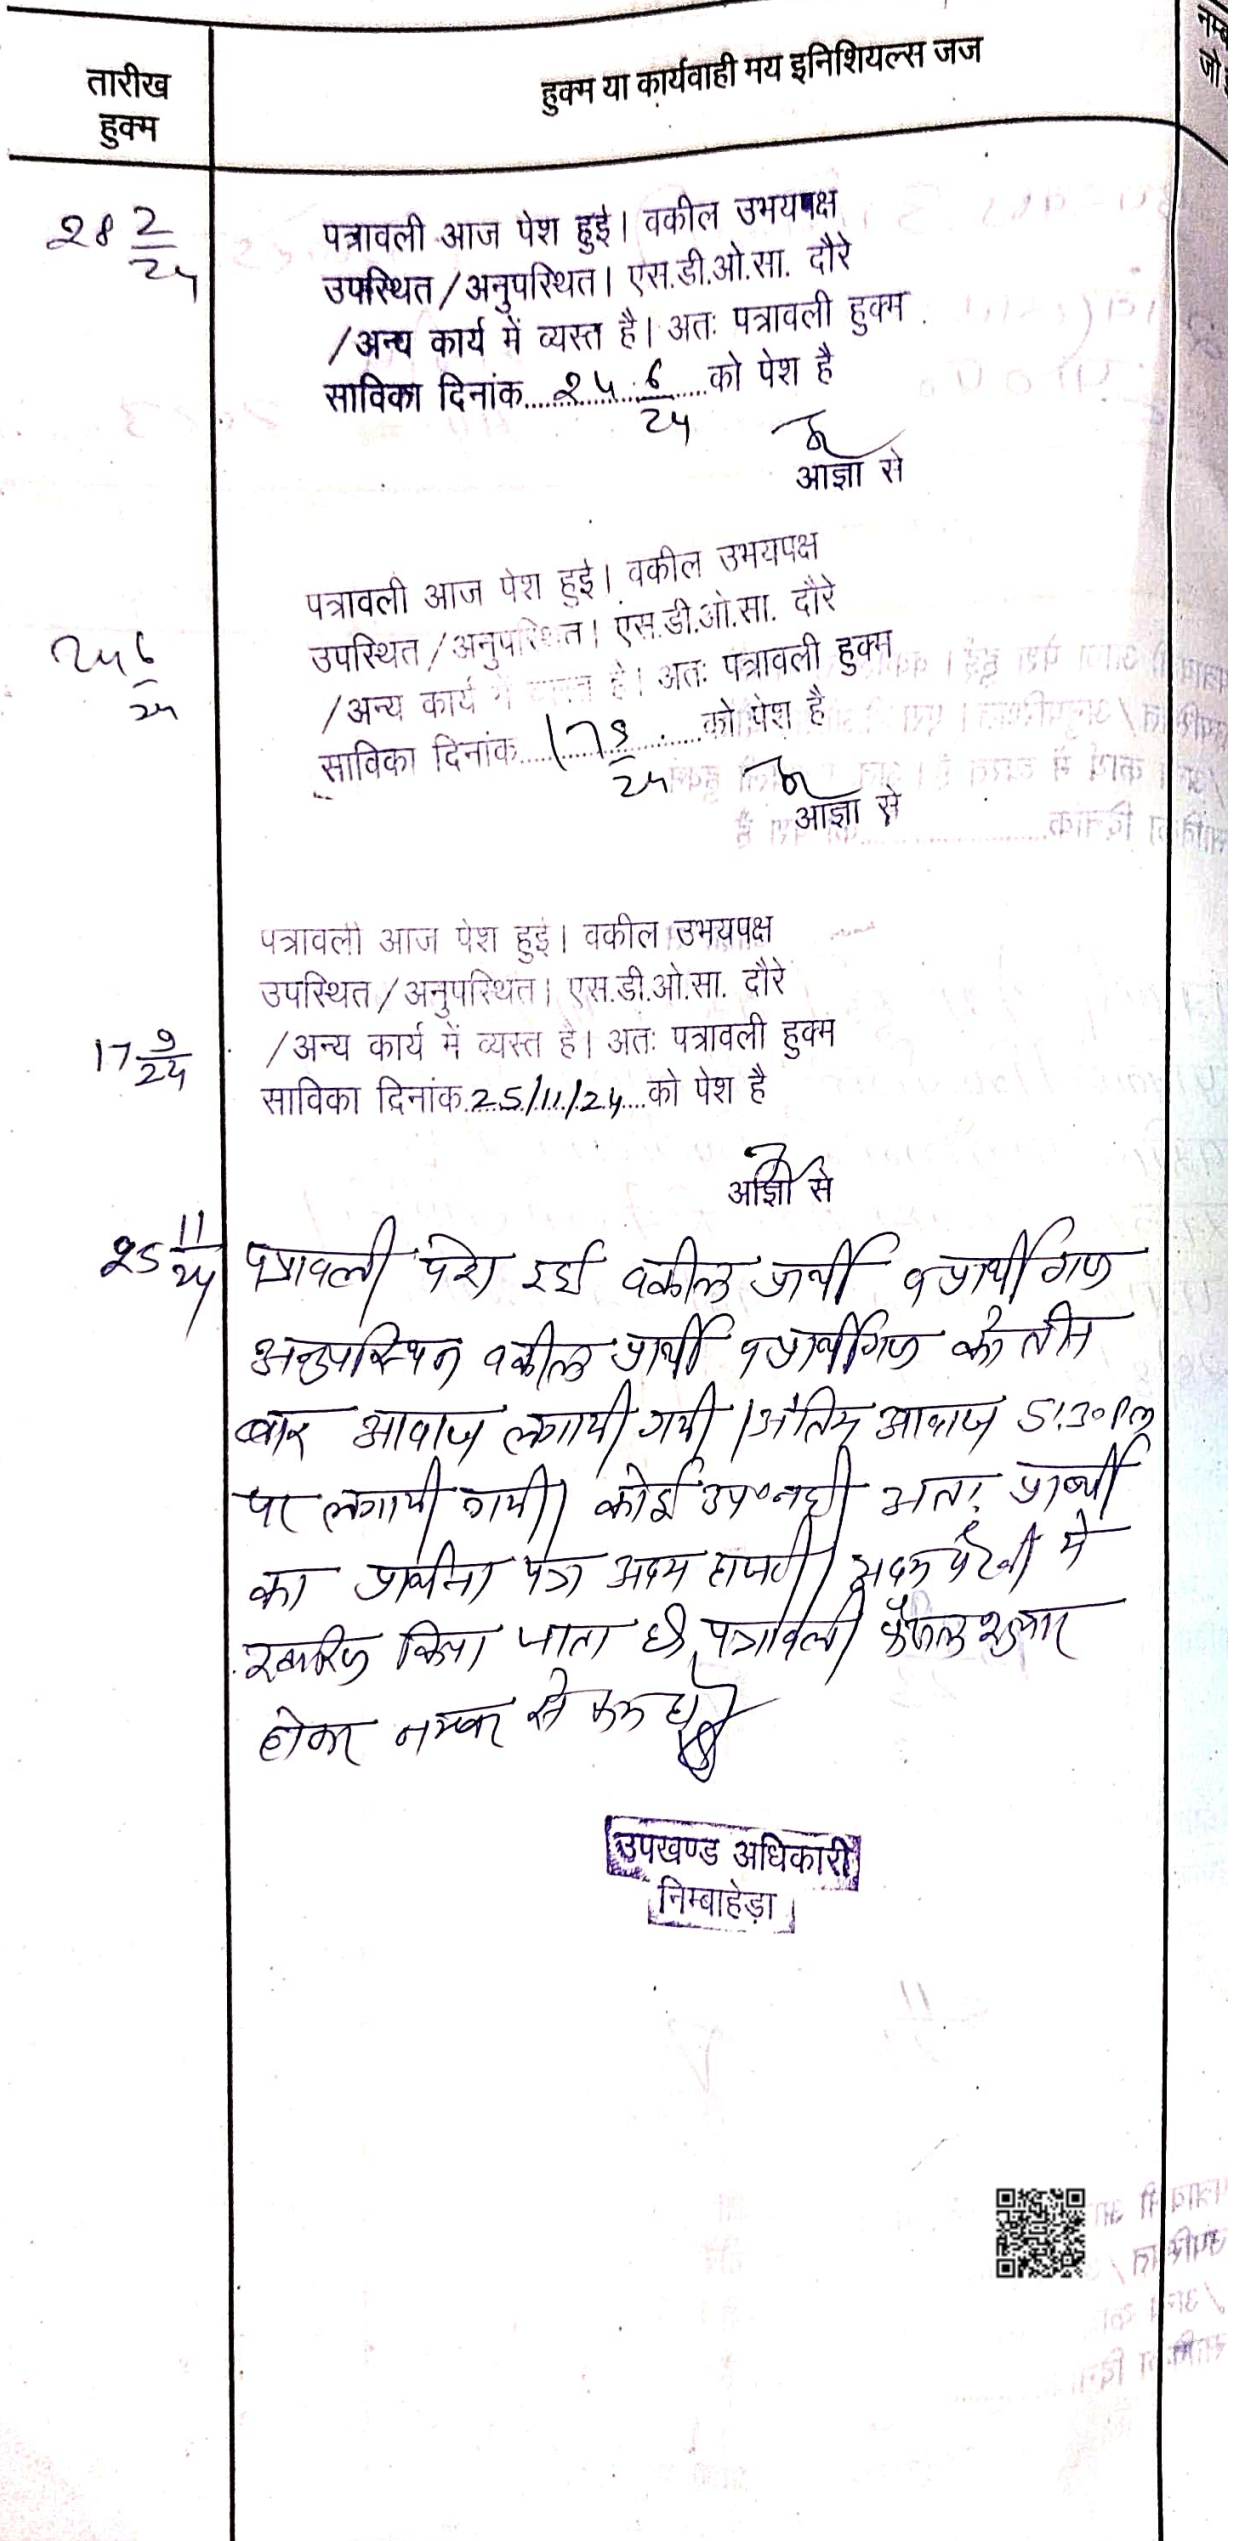 तारीख
हुक्म
हुक्म या कार्यवाही मय इनिशियल्स जज
नम्ब
जो
28 2/24
पत्रावली आज पेश हुई। वकील उभयपक्ष
उपस्थित/अनुपस्थित। एस.डी.ओ.सा. दौरे
/अन्य कार्य में व्यस्त है। अतः पत्रावली हुक्म
साविका दिनांक...24.6/24...को पेश है
आज्ञा से
24 6/24
पत्रावली आज पेश हुई। वकील उभयपक्ष
उपस्थित/अनुपस्थित। एस.डी.ओ.सा. दौरे
/अन्य कार्य में व्यस्त है। अतः पत्रावली हुक्म
साविका दिनांक...17 9/24...को पेश है
आज्ञा से
पत्रावली आज पेश हुई। वकील उभयपक्ष
उपस्थित/अनुपस्थित। एस.डी.ओ.सा. दौरे
17 9/24
/अन्य कार्य में व्यस्त है। अतः पत्रावली हुक्म
साविका दिनांक.25/11/24...को पेश है
आज्ञा से
25 11/24
पत्रावली पेश हुई वकील प्रार्थी व प्रार्थीगण
अनुपस्थित वकील प्रार्थी व प्रार्थीगण को तीन
बार आवाज लगायी गयी। अंतिम आवाज 5:30 PM
पर लगायी गयी। कोई उप० नही अतः प्रार्थी
का प्रार्थना पत्र अदम हाजरी अदम पैरवी में
खारिज किया जाता है पत्रावली फैसल शुमार
होकर नम्बर से कम हो
उपखण्ड अधिकारी
निम्बाहेड़ा